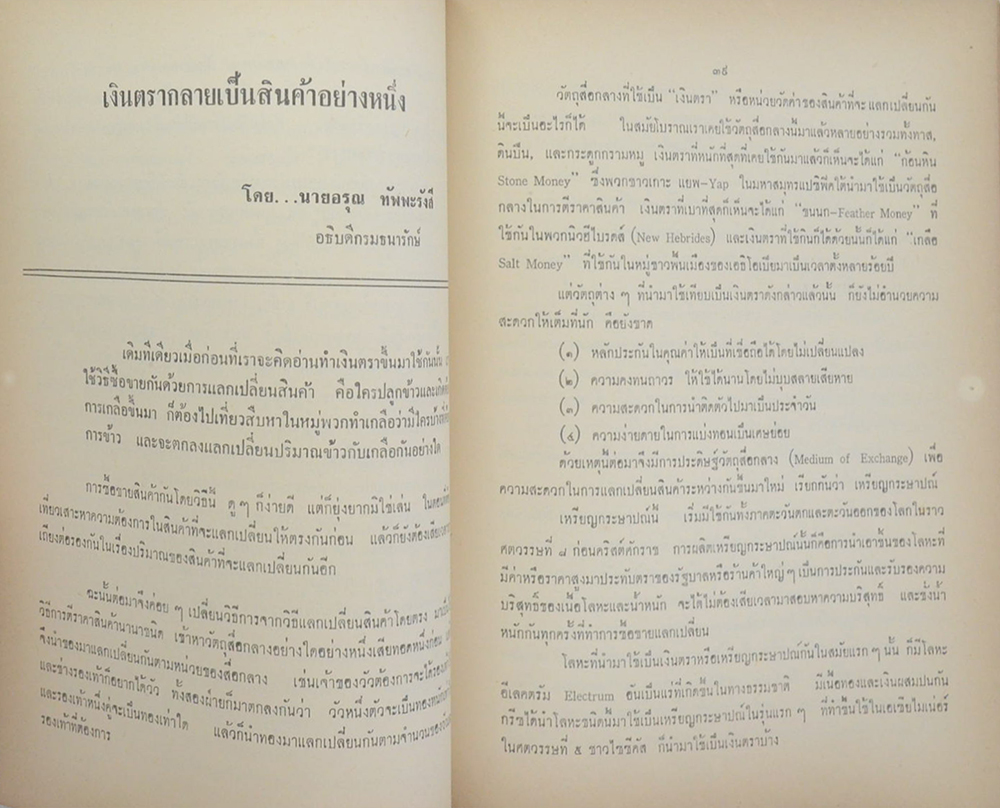 เงินตรากลายเป็นสินค้าอย่างหนึ่ง
โดย...นายอรุณ ทัพพะรังสี
อธิบดีกรมธนารักษ์
เดิมทีเดียวเมื่อก่อนที่เราจะคิดอ่านทำเงินตราขึ้นมาใช้กันนั้น
ใช้วิธีซื้อขายกันด้วยการแลกเปลี่ยนสินค้า คือใครปลูกข้าวและเกิด
การเกลือขึ้นมา ก็ต้องไปเที่ยวสืบหาในหมู่พวกทำเกลือว่ามีใครบ้าง
การข้าว และจะตกลงแลกเปลี่ยนปริมาณข้าวกับเกลือกันอย่างใด
การซื้อขายสินค้ากันโดยวิธีนี้ ดูๆ ก็ง่ายดี แต่ก็ยุ่งยากมิใช่เล่น
เที่ยวเสาะหาความต้องการในสินค้าที่จะแลกเปลี่ยนให้ตรงกันก่อน แล้วก็ยังต้องเสีย
เถียงต่อรองกันในเรื่องปริมาณของสินค้าที่จะแลกเปลี่ยนกันอีก
ฉะนั้นต่อมาจึงค่อย ๆ เปลี่ยนวิธีการจากวิธีแลกเปลี่ยนสินค้าโดยตรง
วิธีการตีราคาสินค้านานาชนิด เข้าหาวัตถุสื่อกลางอย่างใดอย่างหนึ่งเสียทอดหนึ่งก่อน
จึงนำของมาแลกเปลี่ยนกันตามหน่วยของสื่อกลาง เช่นเจ้าของวัวต้องการจะได้รองเท้า
และช่างรองเท้าก็อยากได้วัว ทั้งสองฝ่ายก็มาตกลงกันว่า วัวหนึ่งตัวจะเป็นทอง
และรองเท้าหนึ่งคู่จะเป็นทองเท่าใด แล้วก็นำทองมาแลกเปลี่ยนกันตามจำนวนของ
รองเท้าที่ต้องการ
๓๙
วัตถุสื่อกลางที่ใช้เป็น "เงินตรา" หรือหน่วยวัดค่าของสินค้าที่จะแลกเปลี่ยนกัน
นี้จะเป็นอะไรก็ได้ ในสมัยโบราณเราเคยใช้วัตถุสื่อกลางนี้มาแล้วหลายอย่างรวมทั้งทาส,
ดินปืน, และกระดูกกรามหมู เงินตราที่หนักที่สุดที่เคยใช้กันมาแล้วก็เห็นจะได้แก่ "ก้อนหิน
Stone Money" ซึ่งพวกชาวเกาะ แยพ-Yap ในมหาสมุทรแปซิฟิคได้นำมาใช้เป็นวัตถุสื่อ
กลางในการตีราคาสินค้า เงินตราที่เบาที่สุดก็เห็นจะได้แก่ "ขนนก-Feather Money" ที่
ใช้กันในพวกนิวฮีไบรดส์ (New Hebrides) และเงินตราที่ใช้กินก็ได้ด้วยนั้นก็ได้แก่ "เกลือ
Salt Money" ที่ใช้กันในหมู่ชาวพื้นเมืองของเอธิโอเปียมาเป็นเวลาตั้งหลายร้อยปี
แต่วัตถุต่าง ๆ ที่นำมาใช้เทียบเป็นเงินตราดังกล่าวแล้วนั้น ก็ยังไม่อำนวยความ
สะดวกให้เต็มที่นัก คือยังขาด
(๑) หลักประกันในคุณค่าให้เป็นที่เชื่อถือได้โดยไม่เปลี่ยนแปลง
(๒) ความคงทนถาวร ให้ใช้ได้นานโดยไม่บุบสลายเสียหาย
(๓) ความสะดวกในการนำติดตัวไปมาเป็นประจำวัน
(๔) ความง่ายดายในการแบ่งทอนเป็นเศษย่อย
ด้วยเหตุนี้ต่อมาจึงมีการประดิษฐ์วัตถุสื่อกลาง (Medium of Exchange) เพื่อ
ความสะดวกในการแลกเปลี่ยนสินค้าระหว่างกันขึ้นมาใหม่ เรียกกันว่า เหรียญกระษาปณ์
เหรียญกระษาปณ์นี้ เริ่มมีใช้กันทั้งภาคตะวันตกและตะวันออกของโลกในราว
ศตวรรษที่ ๘ ก่อนคริสต์ศักราช การผลิตเหรียญกระษาปณ์นั้นก็คือการนำเอาชิ้นของโลหะที่
มีค่าหรือราคาสูงมาประทับตราของรัฐบาลหรือร้านค้าใหญ่ๆ เป็นการประกันและรับรองความ
บริสุทธิ์ของเนื้อโลหะและน้ำหนัก จะได้ไม่ต้องเสียเวลามาสอบหาความบริสุทธิ์ และชั่งน้ำ
หนักกันทุกครั้งที่ทำการซื้อขายแลกเปลี่ยน
โลหะที่นำมาใช้เป็นเงินตราหรือเหรียญกระษาปณ์กันในสมัยแรกๆ นั้น ก็มีโลหะ
อีเลคตรัม Electrum อันเป็นแร่ที่เกิดขึ้นในทางธรรมชาติ มีเนื้อทองและเงินผสมปนกัน
กรีซได้นำโลหะชนิดนี้มาใช้เป็นเหรียญกระษาปณ์ในรุ่นแรก ๆ ที่ทำขึ้นใช้ในเอเซียไมเน่อร์
ในศตวรรษที่ ๕ ชาวไซซีคัส ก็นำมาใช้เป็นเงินตราบ้าง